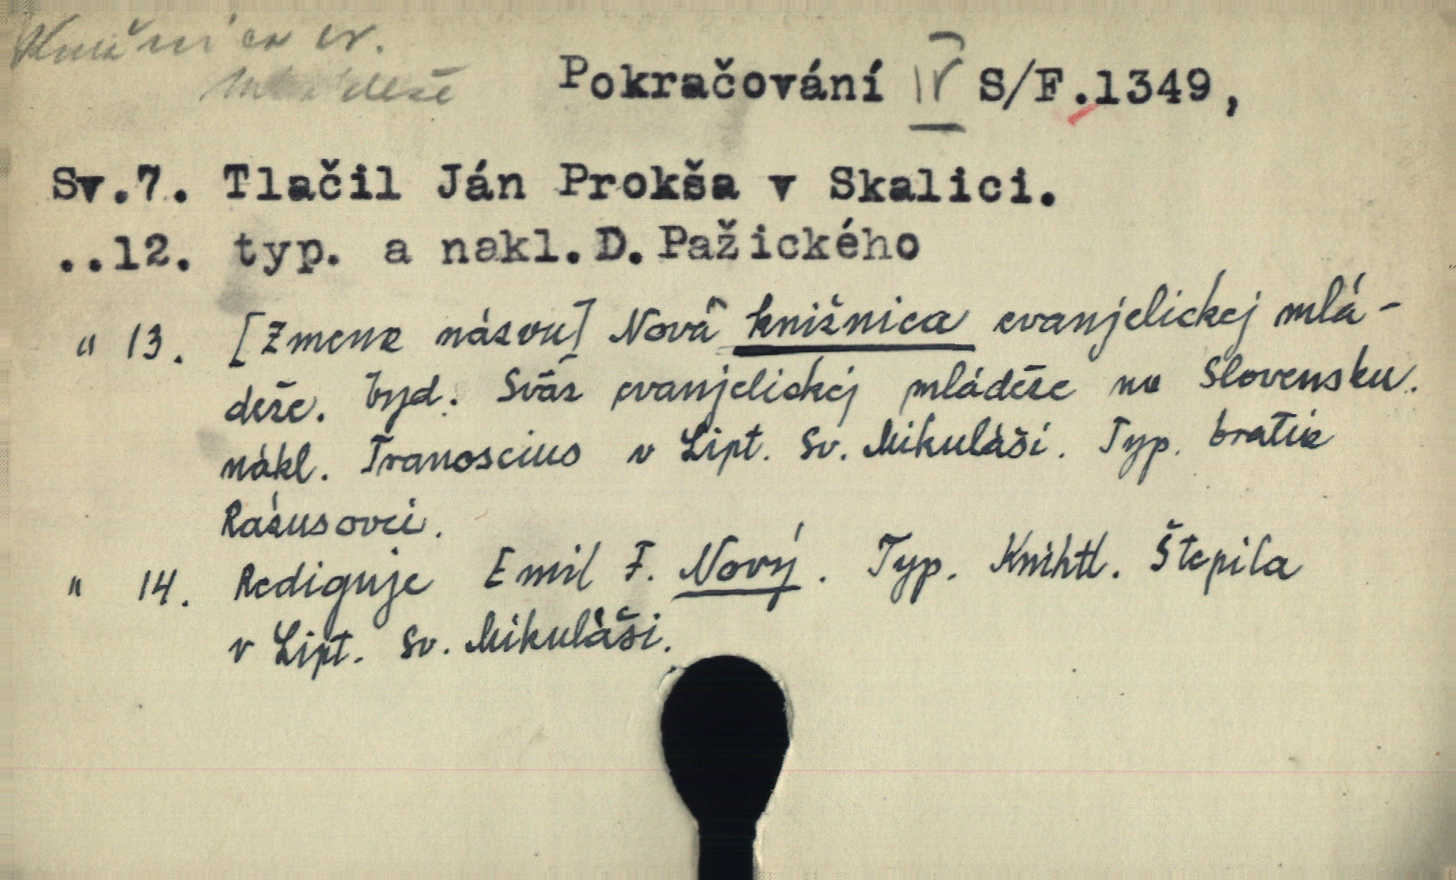 Knižnica ev.
mládeže
Pokračování IV S/F.1349,
Sv.7. Tlačil Ján Prokša v Skalici.
..12. typ. a nakl.D.Pažického
" 13. [Zmena názvu] Nová knižnica evanjelickej mlá-
deže. Vyd. Sväz evanjelickej mládeže na Slovensku.
nákl. Tranoscius v Lipt. Sv. Mikuláši. Typ. bratia
Rázusovci.
" 14. Rediguje Emil F. Nový. Typ. Kníhtl. Štepila
v Lipt. Sv. Mikuláši.